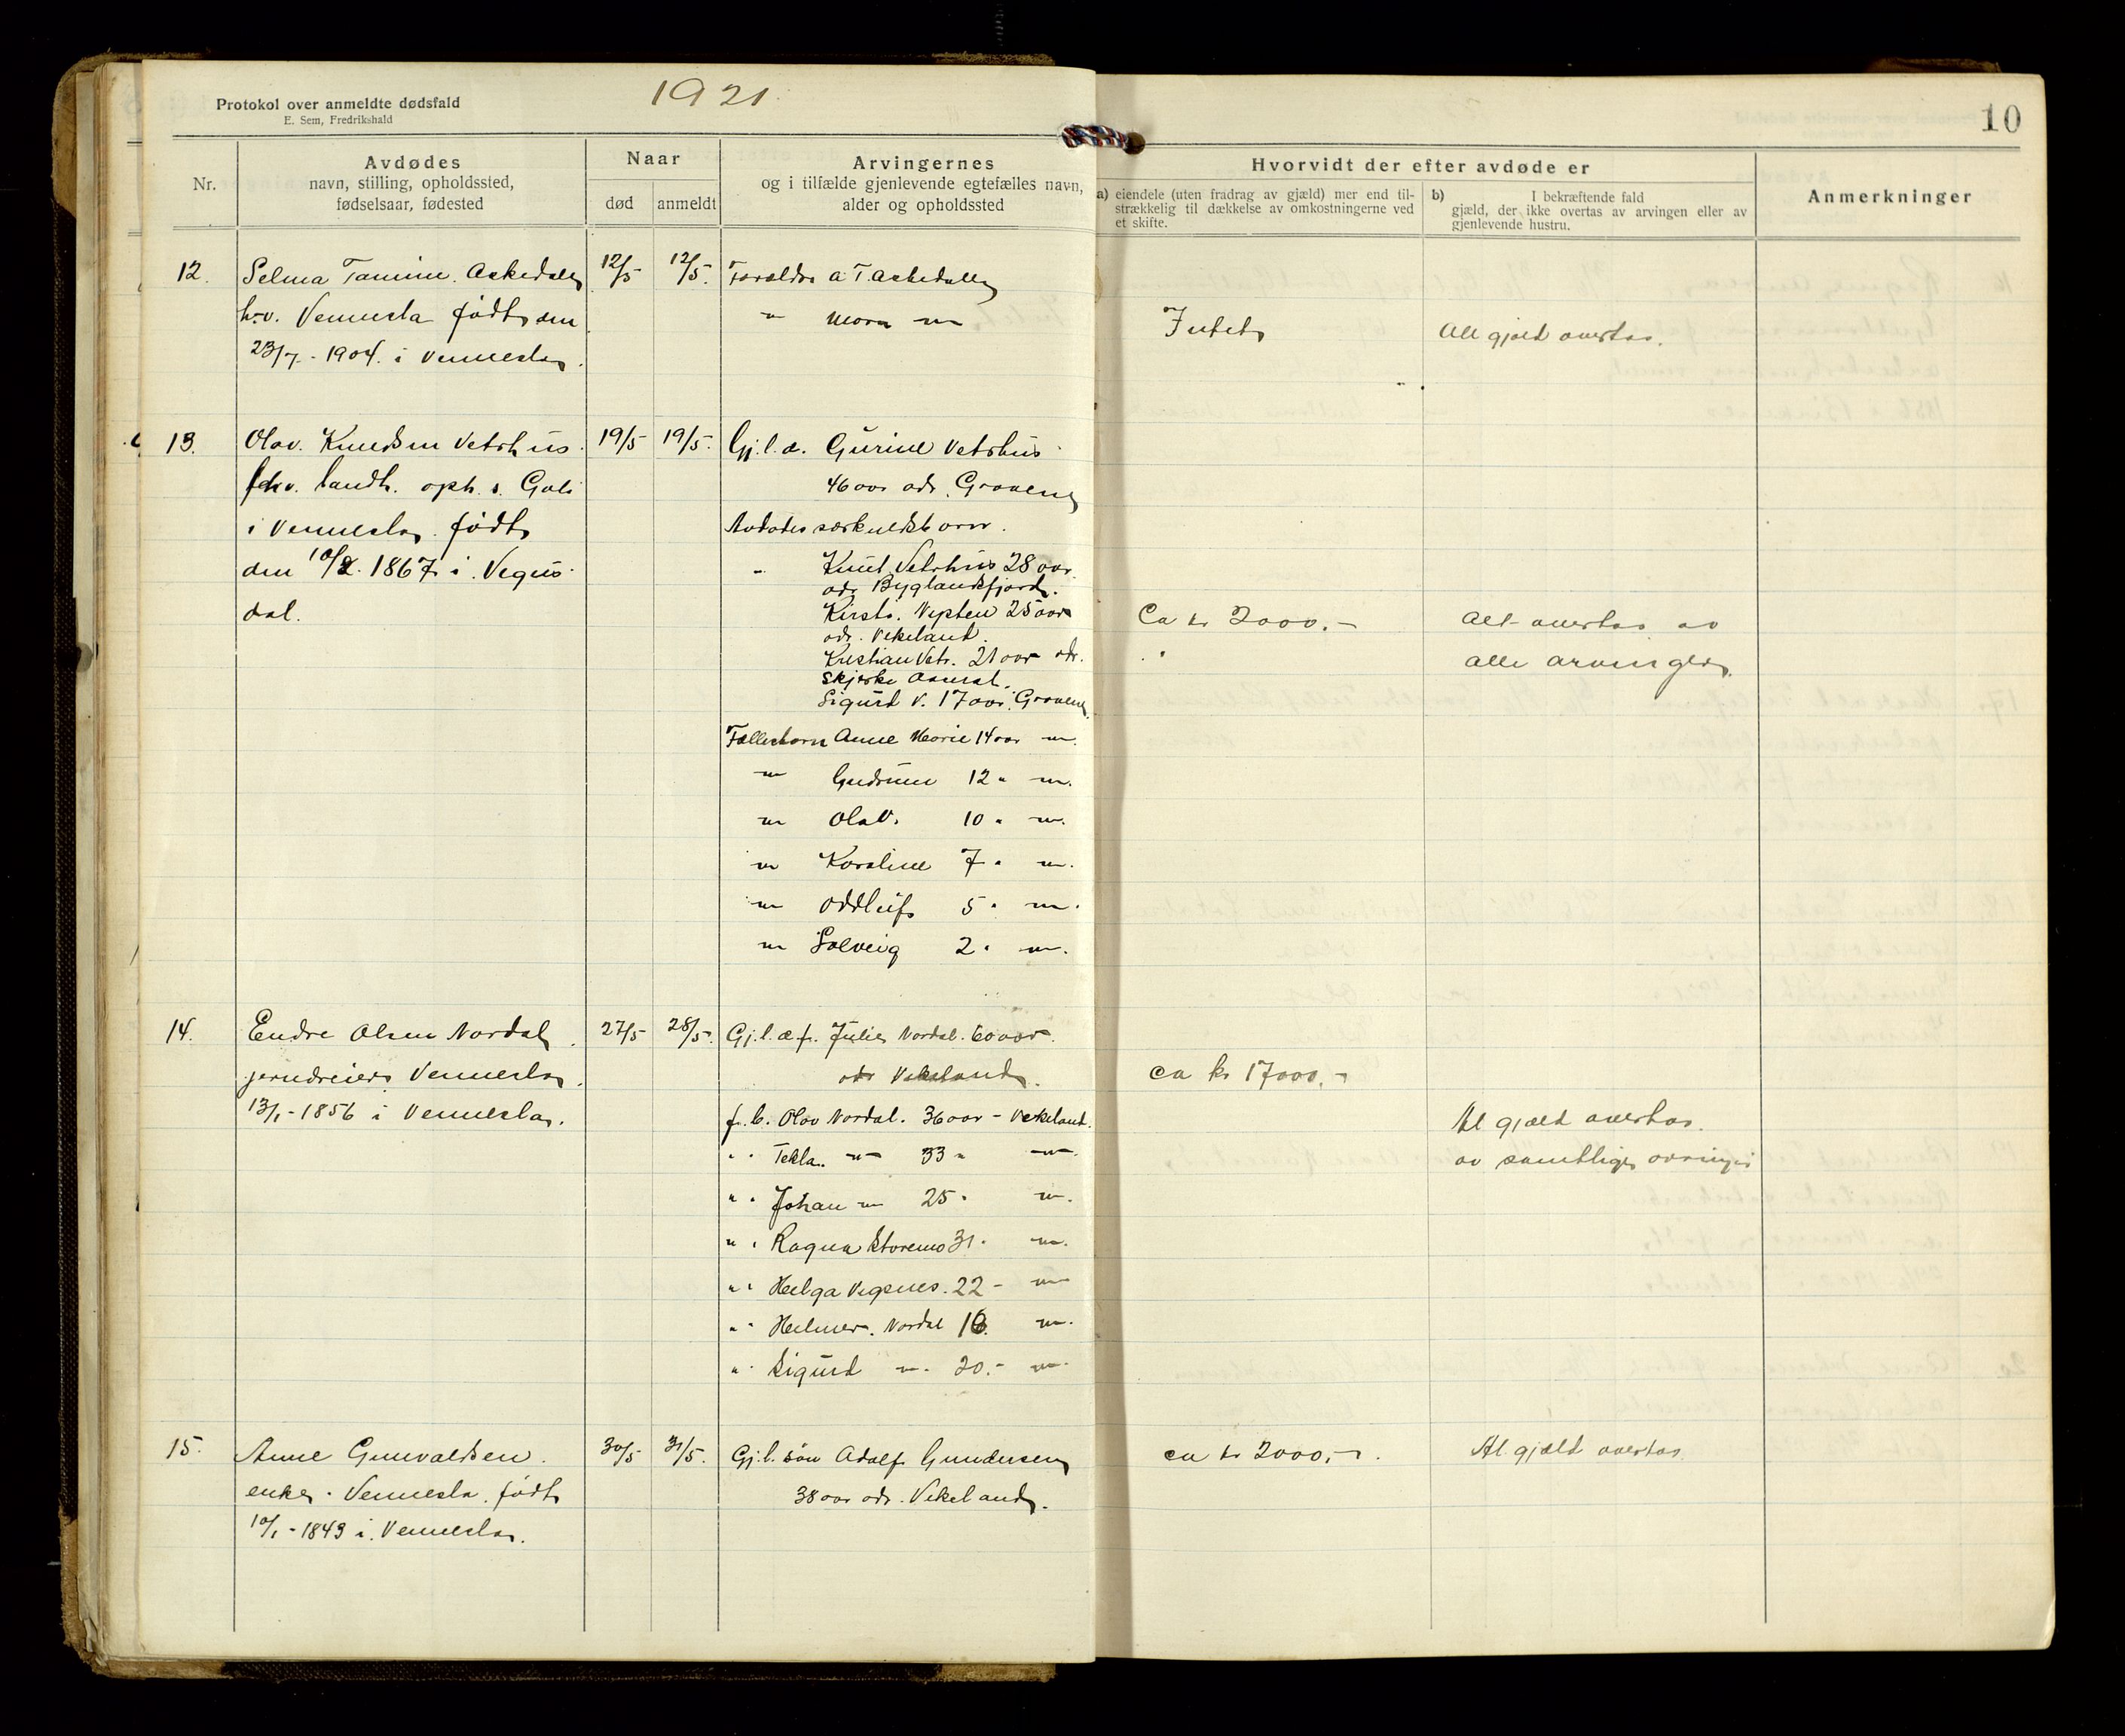 1921
Protokol over anmeldte dødsfald
E. Sem, Fredrikshald
10
Nr.
Avdødes
navn, stilling, opholdssted,
fødselsaar, fødested
Naar
død
anmeldt
Arvingernes
og i tilfælde gjenlevende egtefælles navn,
alder og opholdssted
Hvorvidt der efter avdøde er
a) eiendele (uten fradrag av gjæld) mer end til-
strækkelig til dækkelse av omkostningerne ved
et skifte.
b) I bekræftende fald
gjæld, der ikke overtas av arvingen eller av
gjenlevende hustru.
Anmerkninger
12. Selma Tamine Askedalen 12/5 12/5. Forældre A T. Askedalen
h.v. Vennesla født den " Mora "
23/7 - 1904. i Vennesla.
Intet
Alt gjæld overtas.
13. Olav Knudsen Vetrhus 19/5 19/5. Gj.l.æ. Gurine Vetrhus
landh. oph. i
46 aar adr. Grovene
i Vennesla født
Avdødes særkuldsbarn.
den 10/2. 1867 i Vegus-
dal.
" Knut Vetrhus 28 aar
adr Byglandsfjord.
Kirsti 25 aar
adr. Vikeland.
Kristian Vetr. 21 aar adr.
Skjerke Aaseral.
Sigurd V. 17 aar. Grovene.
Ca kr 2000.-
Alt overtas av
alle arvinger.
Fællesbarn Anne Marie 14 aar "
" Gudrun 12 " "
" Olav. 10 " "
" Karoline 7 " "
" Oddleif 5 " "
" Solveig 2 " "
14. Endre Olsen Nordal 27/5 28/5. Gj.l.æf. Julie Nordal. 60 aar.
jerndreier Vennesla.
adr Vikeland.
13/1 - 1856 i Vennesla.
ca kr 17000.-
f.b. Olav Nordal. 36 aar - Vikeland.
" " Tekla " 33 " "
" " Johan " 25 " "
" " Ragna Storemo 31 " "
" " Helga Vigsnes. 22 - "
" " Helmer. Nordal "
" " Sigurd " 20.- "
Al gjæld overtas.
av samtlige arvinger
15. Anne Gunvaldsen. 30/5 31/5. Gj.l. søn Adolf Gundersen
enke. Vennesla. født
38 aar adr. Vikeland.
10/1 - 1843 i Vennesla.
ca kr 2000,-.
Al gjæld overtas.